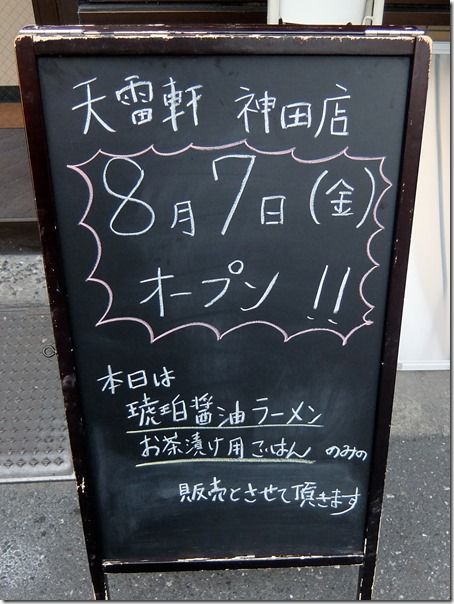 天雷軒 神田店
8月7日(金)
オープン!!
本日は
琥珀醤油ラーメン
お茶漬け用ごはん のみの
販売とさせて頂きます